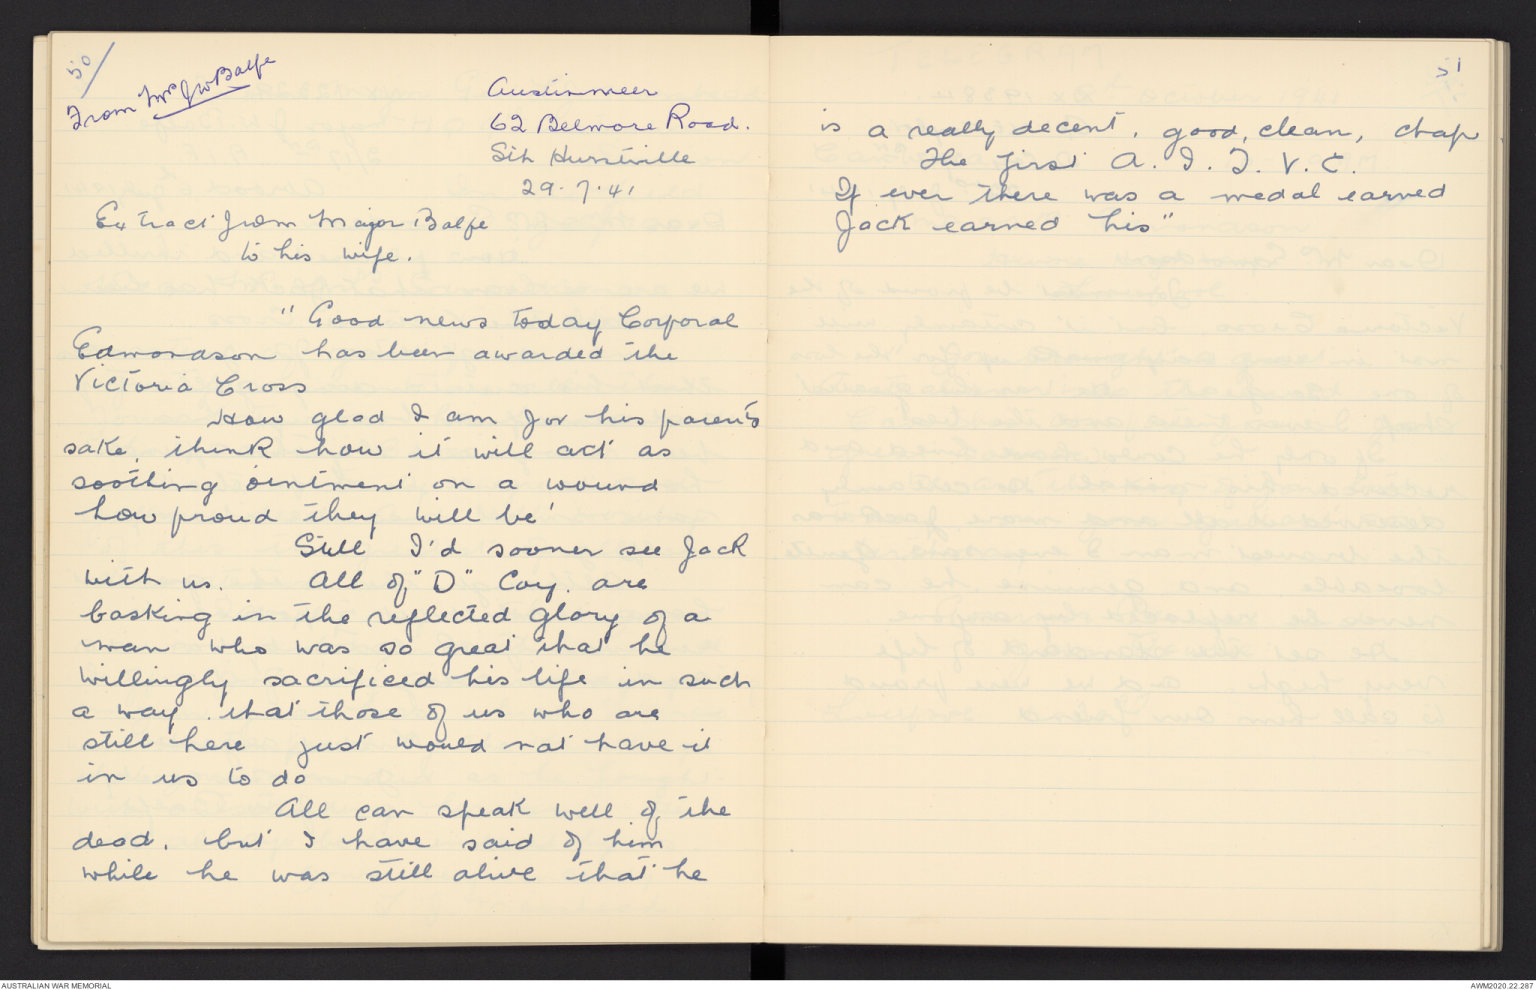 50/
From Mrs J W Balfe
Austinmeer
62 Belmore Road.
Sth Hurstville
29.7.41
Extract from Major Balfe
to his wife.
"Good news today Corporal
Edmondson has been awarded the
Victoria Cross
How glad I am for his parents
sake, think how it will act as
soothing ointment on a wound
how proud they will be'
Still I'd sooner see Jack
with us. All of "D" Coy. are
basking in the reflected glory of a
man who was so great that he
willingly sacrificed his life in such
a way that those of us who are
still here just would not have it
in us to do
All can speak well of the
dead, but I have said of him
while he was still alive that he
51
is a really decent, good, clean, chap
The first A.I.F. V.C.
If ever there was a medal earned
Jack earned his"
AUSTRALIAN WAR MEMORIAL
AWM2020.22.287